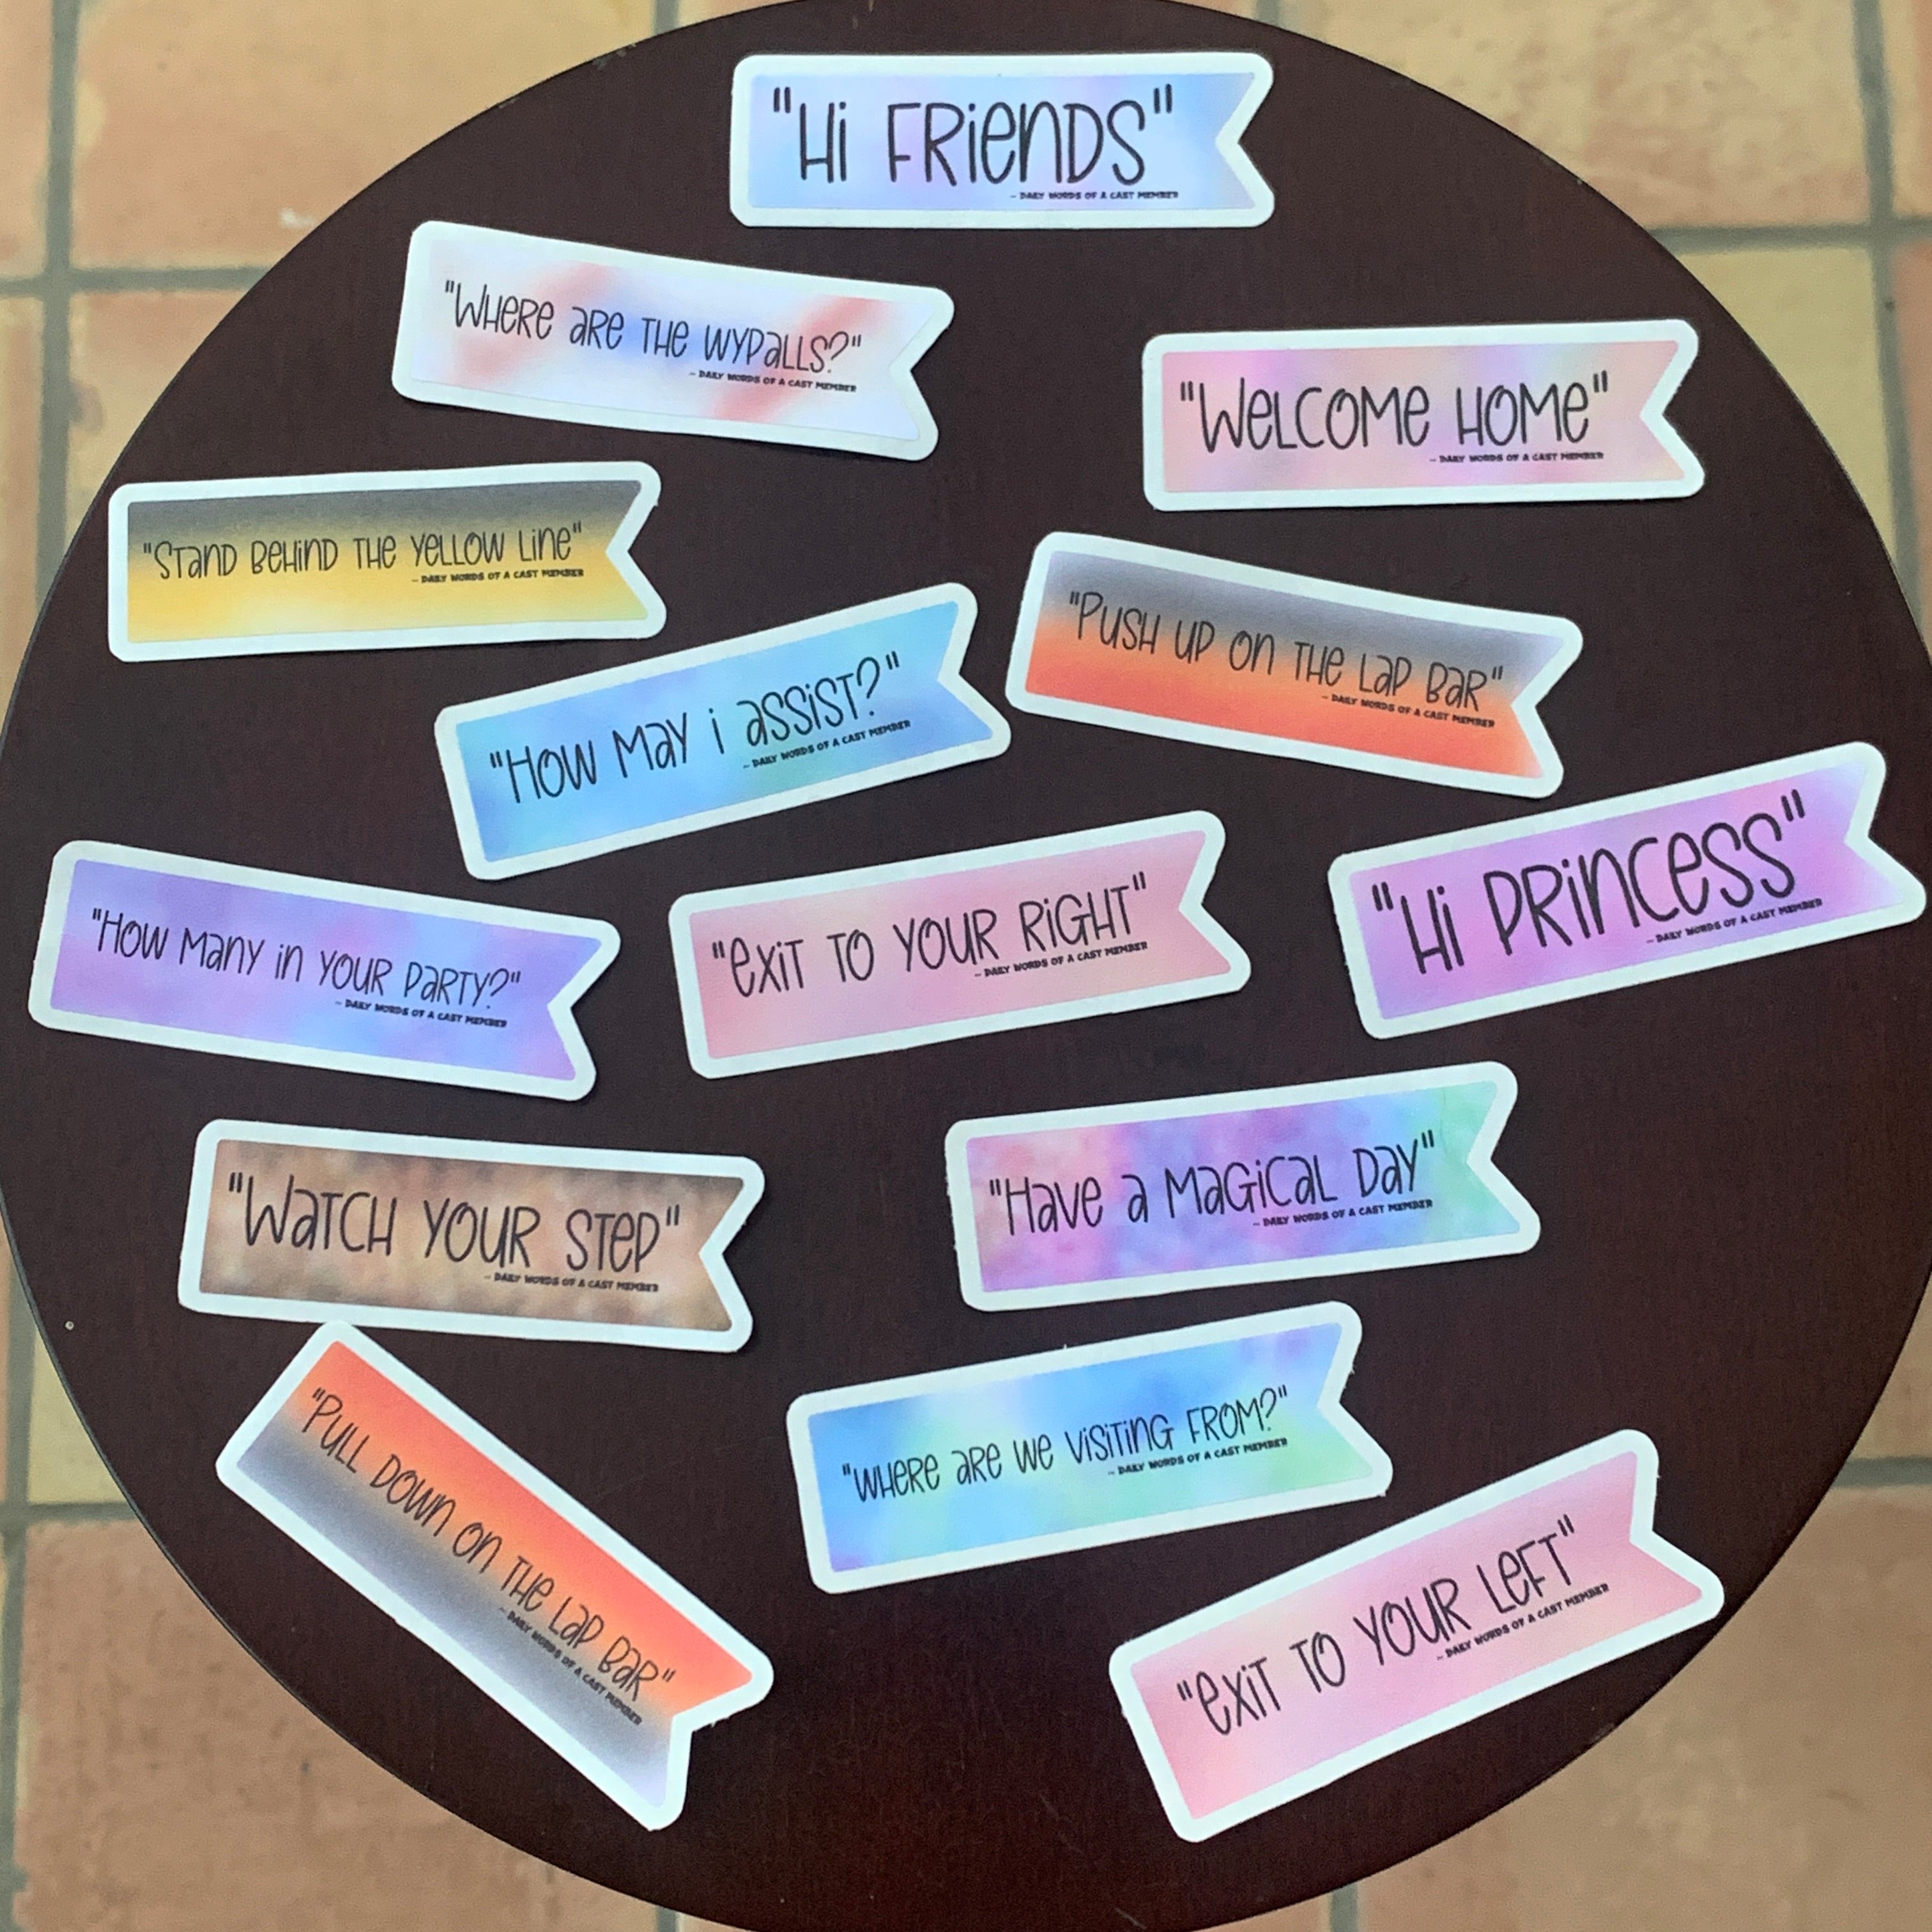 "Hi FRiENDS"
— DAILY WORDS OF A CAST MEMBER
"WHERE ARE THE WYPALLS?"
— DAILY WORDS OF A CAST MEMBER
"WELCOME HOME"
— DAILY WORDS OF A CAST MEMBER
"STAND BEHIND THE YELLOW LINE"
— DAILY WORDS OF A CAST MEMBER
"PUSH UP ON THE LAP BAR"
— DAILY WORDS OF A CAST MEMBER
"HOW MAY i ASSiST?"
— DAILY WORDS OF A CAST MEMBER
"Hi PRiNCESS"
— DAILY WORDS OF A CAST MEMBER
"HOW MANY iN YOUR PARTY?"
— DAILY WORDS OF A CAST MEMBER
"EXiT TO YOUR RiGHT"
— DAILY WORDS OF A CAST MEMBER
"WATCH YOUR STEP"
— DAILY WORDS OF A CAST MEMBER
"HAVE A MAGiCAL DAY"
— DAILY WORDS OF A CAST MEMBER
"PULL DOWN ON THE LAP BAR"
— DAILY WORDS OF A CAST MEMBER
"WHERE ARE WE ViSiTiNG FROM?"
— DAILY WORDS OF A CAST MEMBER
"EXiT TO YOUR LEFT"
— DAILY WORDS OF A CAST MEMBER